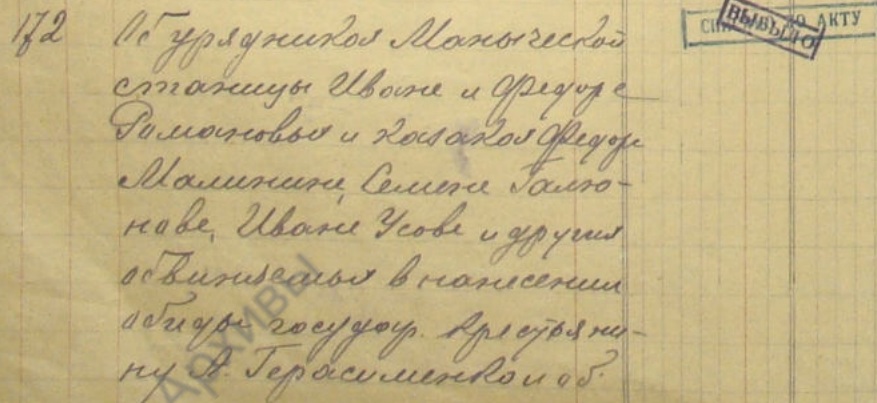 172 Об урядниках Манычской
станицы Иване и Федоре
Романовых и казаках Федоре
Малинине, Семене Галю-
нове, Иване Усове и других
обвиняемых в нанесении
обиды государ. крестьяни-
ну А. Герасименко
ВЫБЫЛО
ПО АКТУ
Архивы